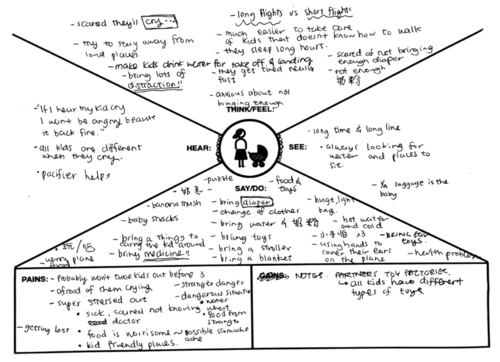 - scared they'll cry...
- try to stay away from
loud places
- long flights vs short flights
- much easier to take care
of kids that doesn't know how to walk
- they sleep long hours.
- make kids drink water for take off & landing
- bring lots of
distraction!!
- they get tired really
fast
- scared of not bringing
enough diaper
- not enough
奶粉
- anxious about not
bringing enough
THINK/FEEL:
- "If I hear my kid cry
I won't be angry because
it back fire."
- all kids are different
when they cry.
- pacifier helps
HEAR:
SEE:
- long time & long line
- always looking for
water and places to
sit.
- 1/4 luggage is the
baby
SAY/DO:
- puzzle
- banana mush
- baby snacks
- bring a things to
carry the kid around
- bring medicine!!
- food &
toys
- bring diaper
- change of clothes
- bring water & 奶粉
- bring toys
- bring a stroller
- bring a blanket
- huge, light
bag.
- hot water
and cold
toys.
- using hands to
cover their ears
on the plane
- health problem
PAINS:
- Probably won't take kids out before 3
- afraid of them crying
- super stressed out
• sick, scared not knowing what
doctor
- getting lost
• food is worrisome → possible stomach
ache
• kid friendly places.
- stranger danger
- dangerous situation
• food from
strangers
GAINS:
NOTES: PARTNERS TOY FACTORIES.
↳ all kids have different
types of toys.